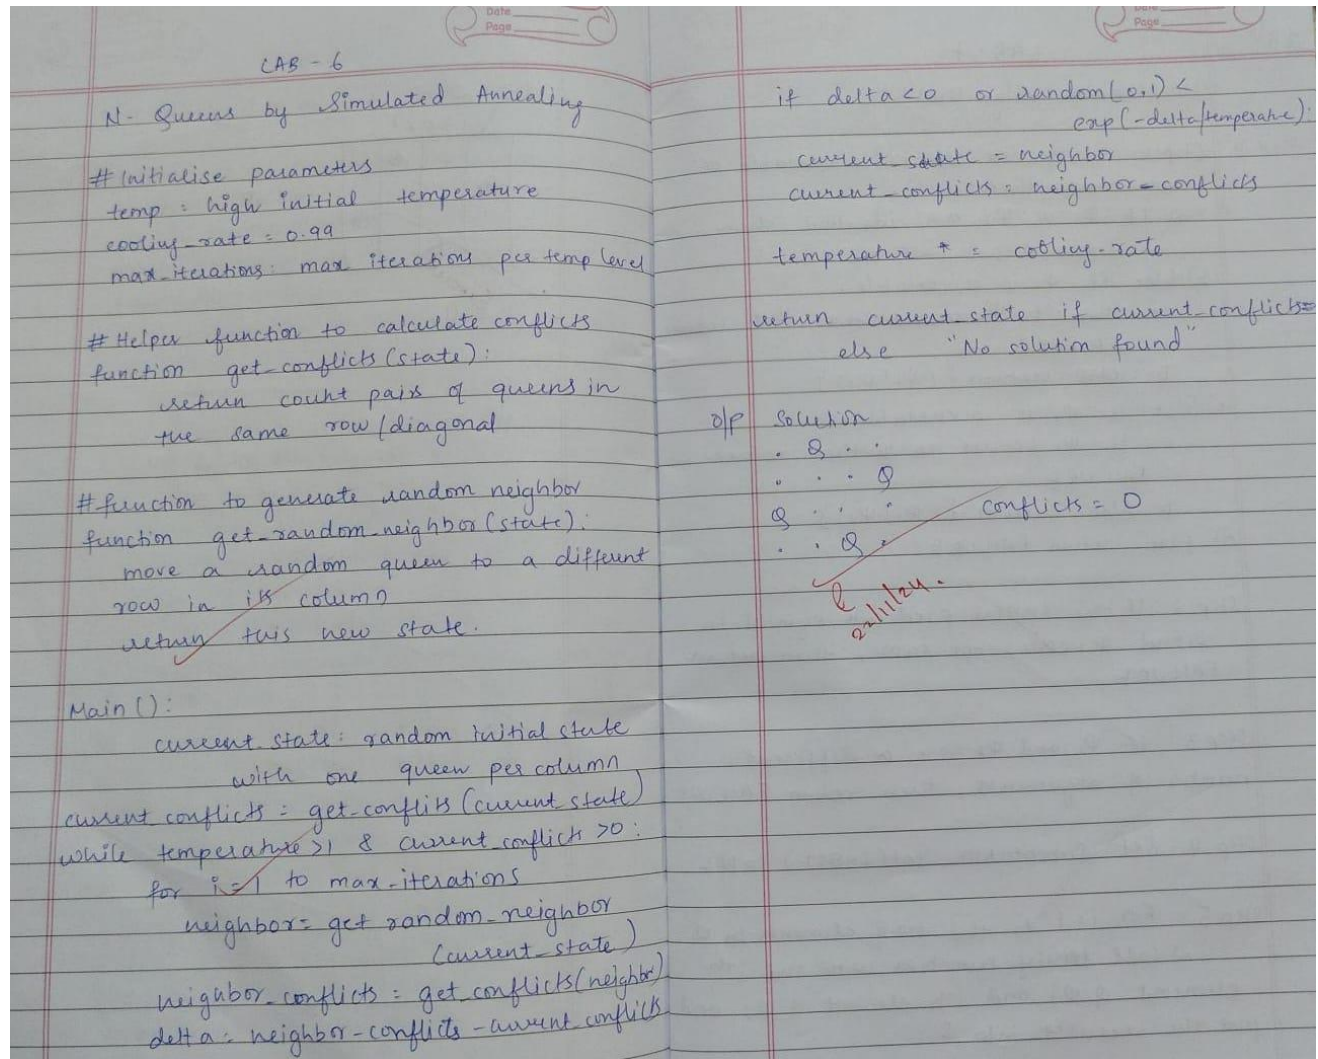 Date
Page
LAB - 6
N- Queens by Simulated Annealing
# Initialise parameters
temp = high initial temperature
cooling_rate = 0.99
max_iterations = max iterations per temp level
# Helper function to calculate conflicts
function get_conflicts(state):
return count pairs of queens in
the same row/diagonal
# function to generate random neighbor
function get_random_neighbor(state):
move a random queen to a different
row in its column
return this new state.
Main():
current_state = random initial state
with one queen per column
current_conflicts = get_conflits(current_state)
while temperature >1 & current_conflict >0:
for i=1 to max_iterations
neighbor = get random_neighbor
(current_state)
neighbor_conflicts = get_conflicts(neighbor)
delta = neighbor-conflicts - current_conflicts
Date
Page
if delta <0 or random(0,1) <
exp(-delta/temperature):
current state = neighbor
current_conflicts = neighbor_conflicts
temperature * = cooling_rate
return current_state if current_conflicts=
else "No solution found"
o/p Solution
. Q . .
. . . Q
Q . . . conflicts = 0
. . Q .
22/11/24.